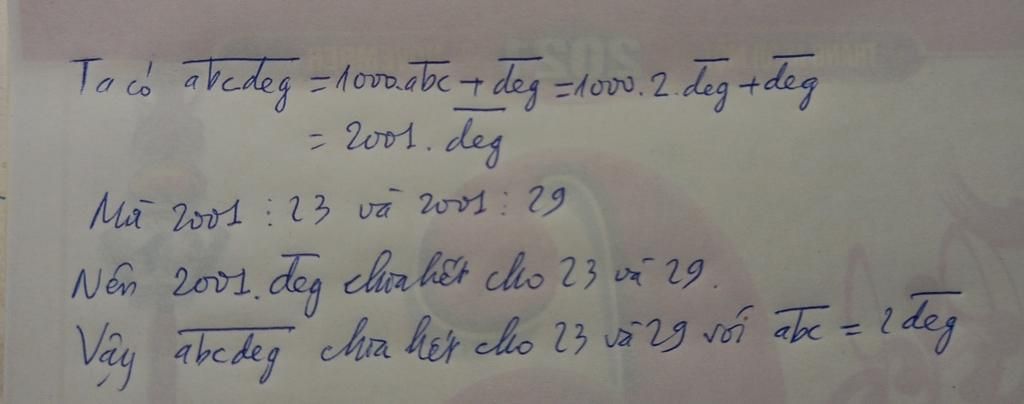 Ta có abcdeg = 1000.abc + deg = 1000.2.deg + deg
= 2001. deg
Mà 2001 ⋮ 23 và 2001 ⋮ 29
Nên 2001.deg chia hết cho 23 và 29.
Vậy abcdeg chia hết cho 23 và 29 với abc = 2deg